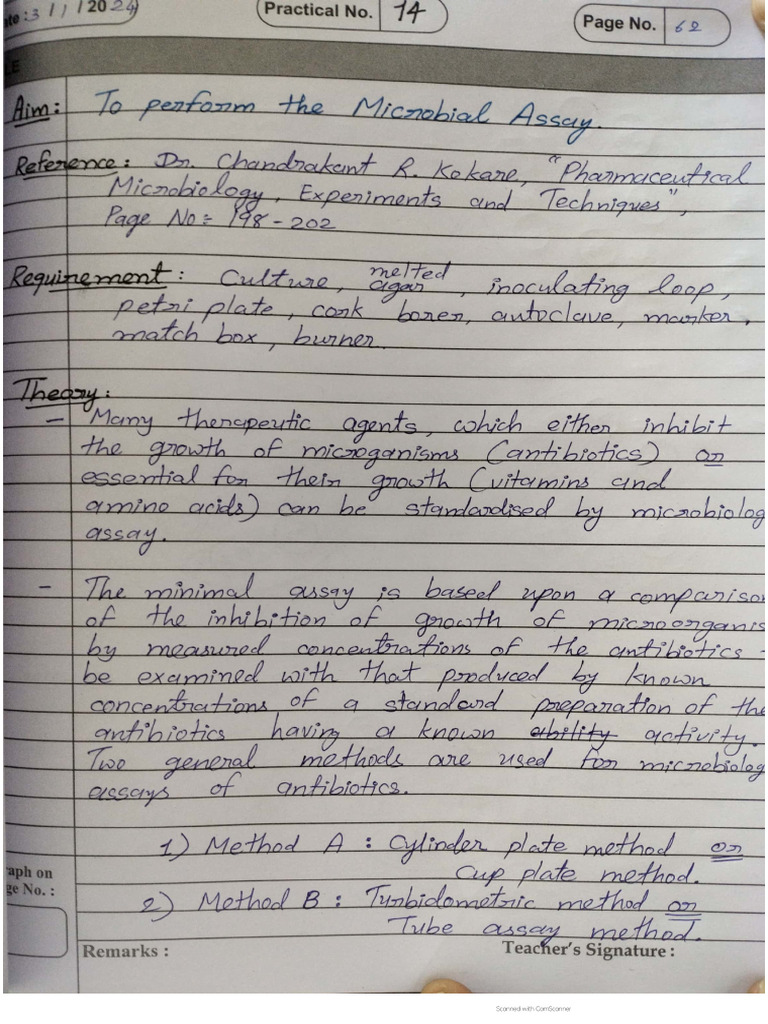 ate : 3 1/1/2024 Practical No. 14 Page No. 62
LE
Aim: To perform the Microbial Assay.
Reference: Dr. Chandrakant R. Kokare, "Pharmaceutical
Microbiology, Experiments and Techniques",
Page No:- 198-202
Requirement: Culture, melted agar, inoculating loop,
petri plate, cork borer, autoclave, marker,
match box, burner.
Theory:
- Many therapeutic agents, which either inhibit
the growth of microganisms (antibiotics) or
essential for their growth (vitamins and
amino acids) can be standardised by microbiolog
assay.
- The minimal assay is based upon a comparison
of the inhibition of growth of microorganis
by measured concentrations of the antibiotics -
be examined with that produced by known
concentrations of a standard preparation of the
antibiotics having a known ability activity.
Two general methods are used for microbiolog
assays of antibiotics.
1) Method A : Cylinder plate method or
Cup plate method.
2) Method B : Turbidometric method or
Tube assay method.
raph on
ge No. :
Remarks : Teacher's Signature :
Scanned with CamScanner